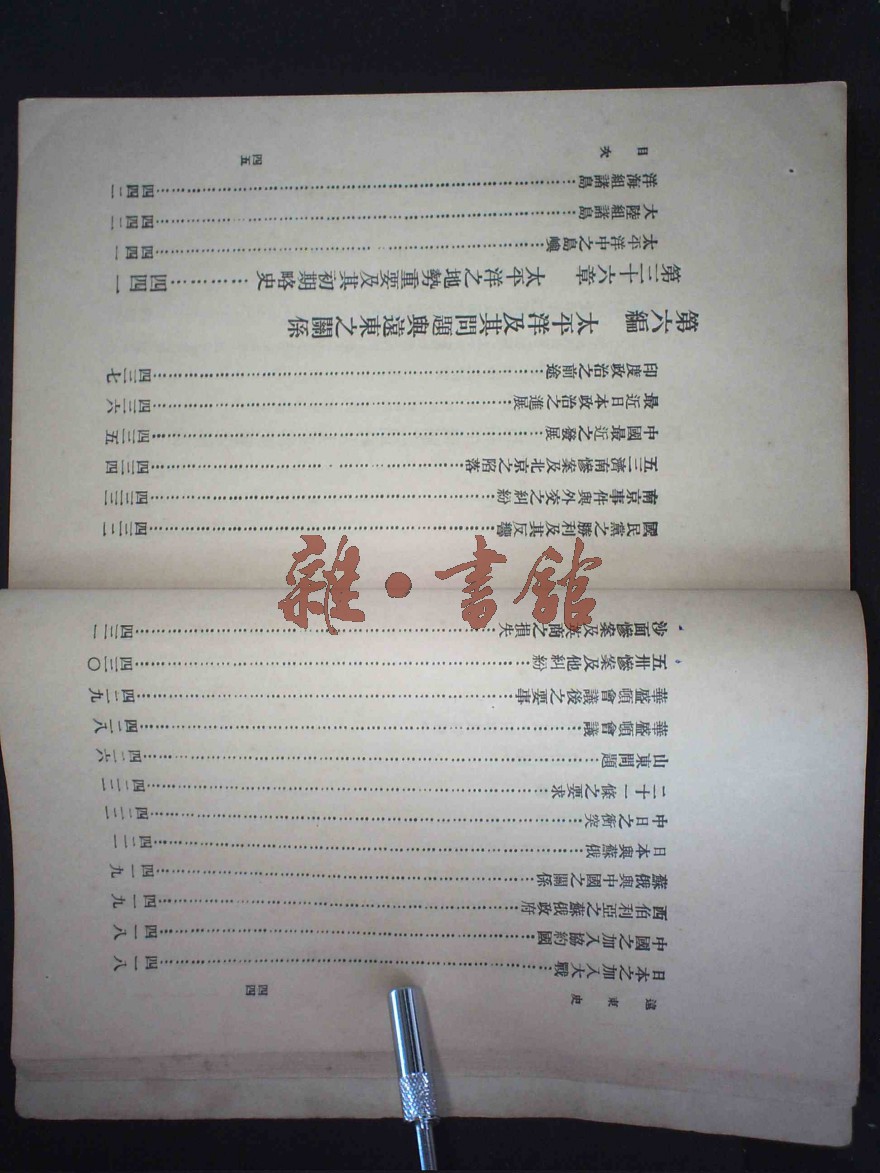 遠東史
日本之加入大戰……四一八
中國之加入協約國……四一八
西伯利亞之蘇俄政府……四一九
蘇俄與中國之關係……四一九
日本與蘇俄……四二一
中日之衝突……四二二
二十一條之要求……四二三
山東問題……四二六
華盛頓會議……四二八
華盛頓會議後之要事……四二九
五卅慘案及他糾紛……四三〇
沙面慘案及英商之損失……四三一
四四
目次
國民黨之勝利及其反響……四三二
南京事件與外交之糾紛……四三三
五三濟南慘案及北京之陷落……四三四
中國最近之發展……四三五
最近日本政治之進展……四三六
印度政治之前途……四三七
第六編 太平洋及其問題與遠東之關係
第三十六章 太平洋之地勢重要及其初期略史……四四一
太平洋中之島嶼……四四一
大陸組諸島……四四二
洋海組諸島……四四二
四五
雜·書館